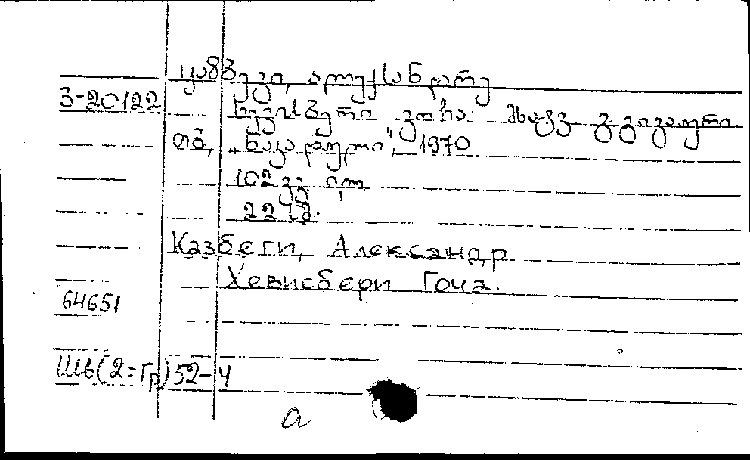 ყაზბეგი, ალექსანდრე
3-20122
ხევისბერი გოჩა. მხატვ. გ. გიგაური
თბ., „ნაკადული“, 1970
102 გვ. ილ.
22 სმ.
Казбеги, Александр
Хевисбери Гоча.
64651
Шь(2=Гр)52-4
а